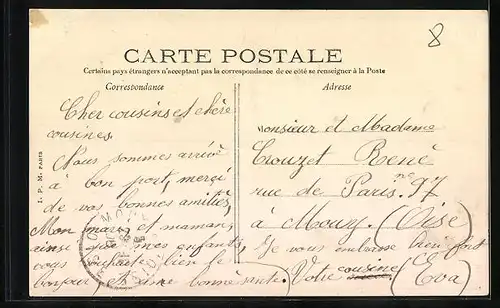 8
CARTE POSTALE
Certains pays étrangers n'acceptant pas la correspondance de ce côté se renseigner à la Poste
Correspondance
Cher cousins et chère
cousines.
Nous sommes arrivé
à bon port, merçi
de vos bonnes amitiés,
Mon mari, et maman,
ainse que mes enfants,
vous souhaite bien le
bonjour, et une bonne santé.
Adresse
Monsieur et Madame
Crouzet René
rue de Paris nº 97
à Mouy. (Oise)
Je vous embrasse bien fort
Votre cousine (Eva)
I. P. M. PARIS